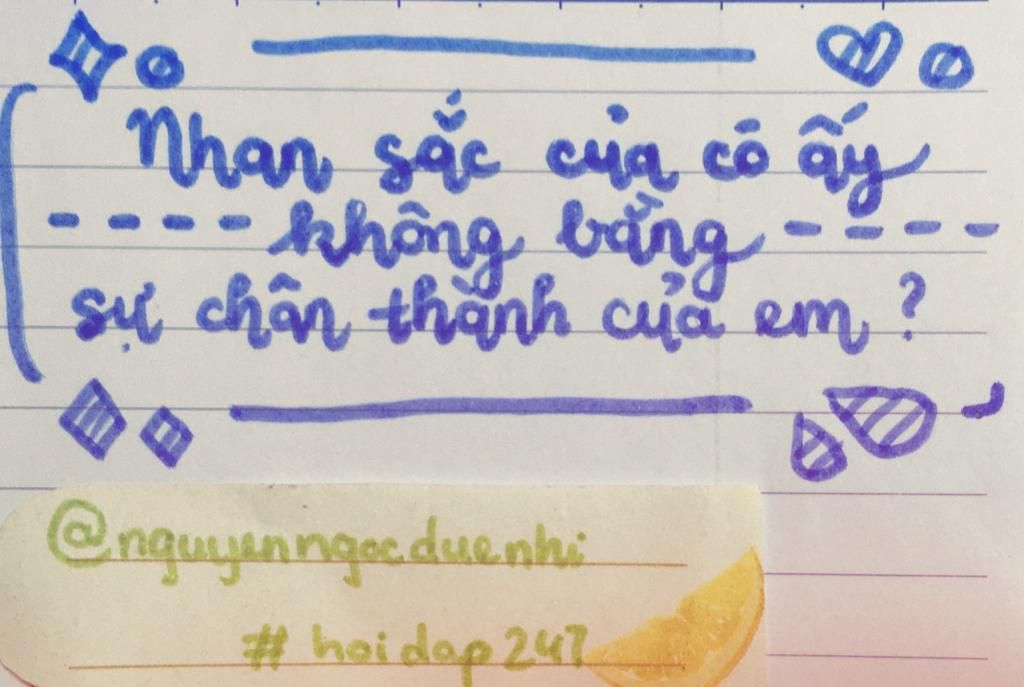 Nhan sắc của cô ấy
không bằng
sự chân thành của em ?
@nguyenngocduenhi
# hoidap247